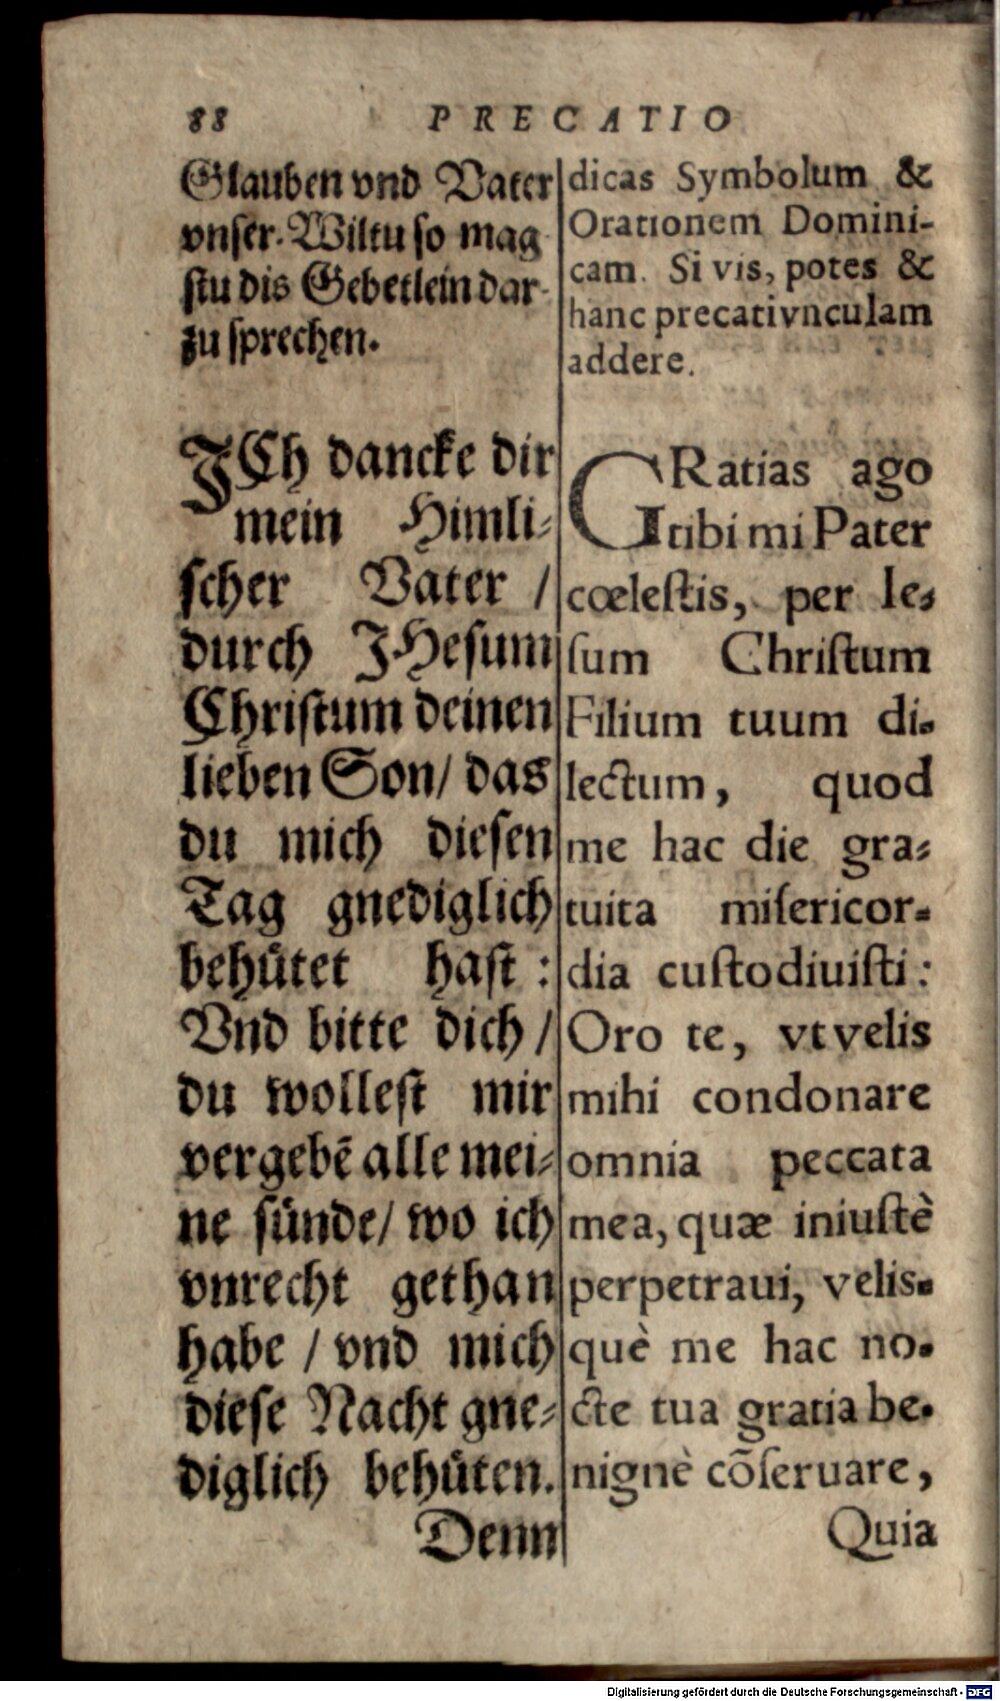 88 PRECATIO
Glauben vnd Vater
vnser. Wiltu so mag
stu dis Gebetlein dar-
zu sprechen.
JCh dancke dir
mein Himli-
scher Vater /
durch JHesum
Christum deinen
lieben Son/ das
du mich diesen
Tag gnediglich
behütet hast :
Vnd bitte dich /
du wollest mir
vergebē alle mei-
ne sünde/ wo ich
vnrecht gethan
habe / vnd mich
diese Nacht gne-
diglich behüten.
Denn
dicas Symbolum &
Orationem Domini-
cam. Si vis, potes &
hanc precativnculam
addere.
GRatias ago
tibi mi Pater
cœleſtis, per Ie-
ſum Chriſtum
Filium tuum di-
lectum, quod
me hac die gra-
tuita miſericor-
dia cuſtodiuiſti :
Oro te, vt velis
mihi condonare
omnia peccata
mea, quæ iniuſtè
perpetraui, velis-
què me hac no-
cte tua gratia be-
nignè cõſeruare,
Quia
Digitalisierung gefördert durch die Deutsche Forschungsgemeinschaft - DFG